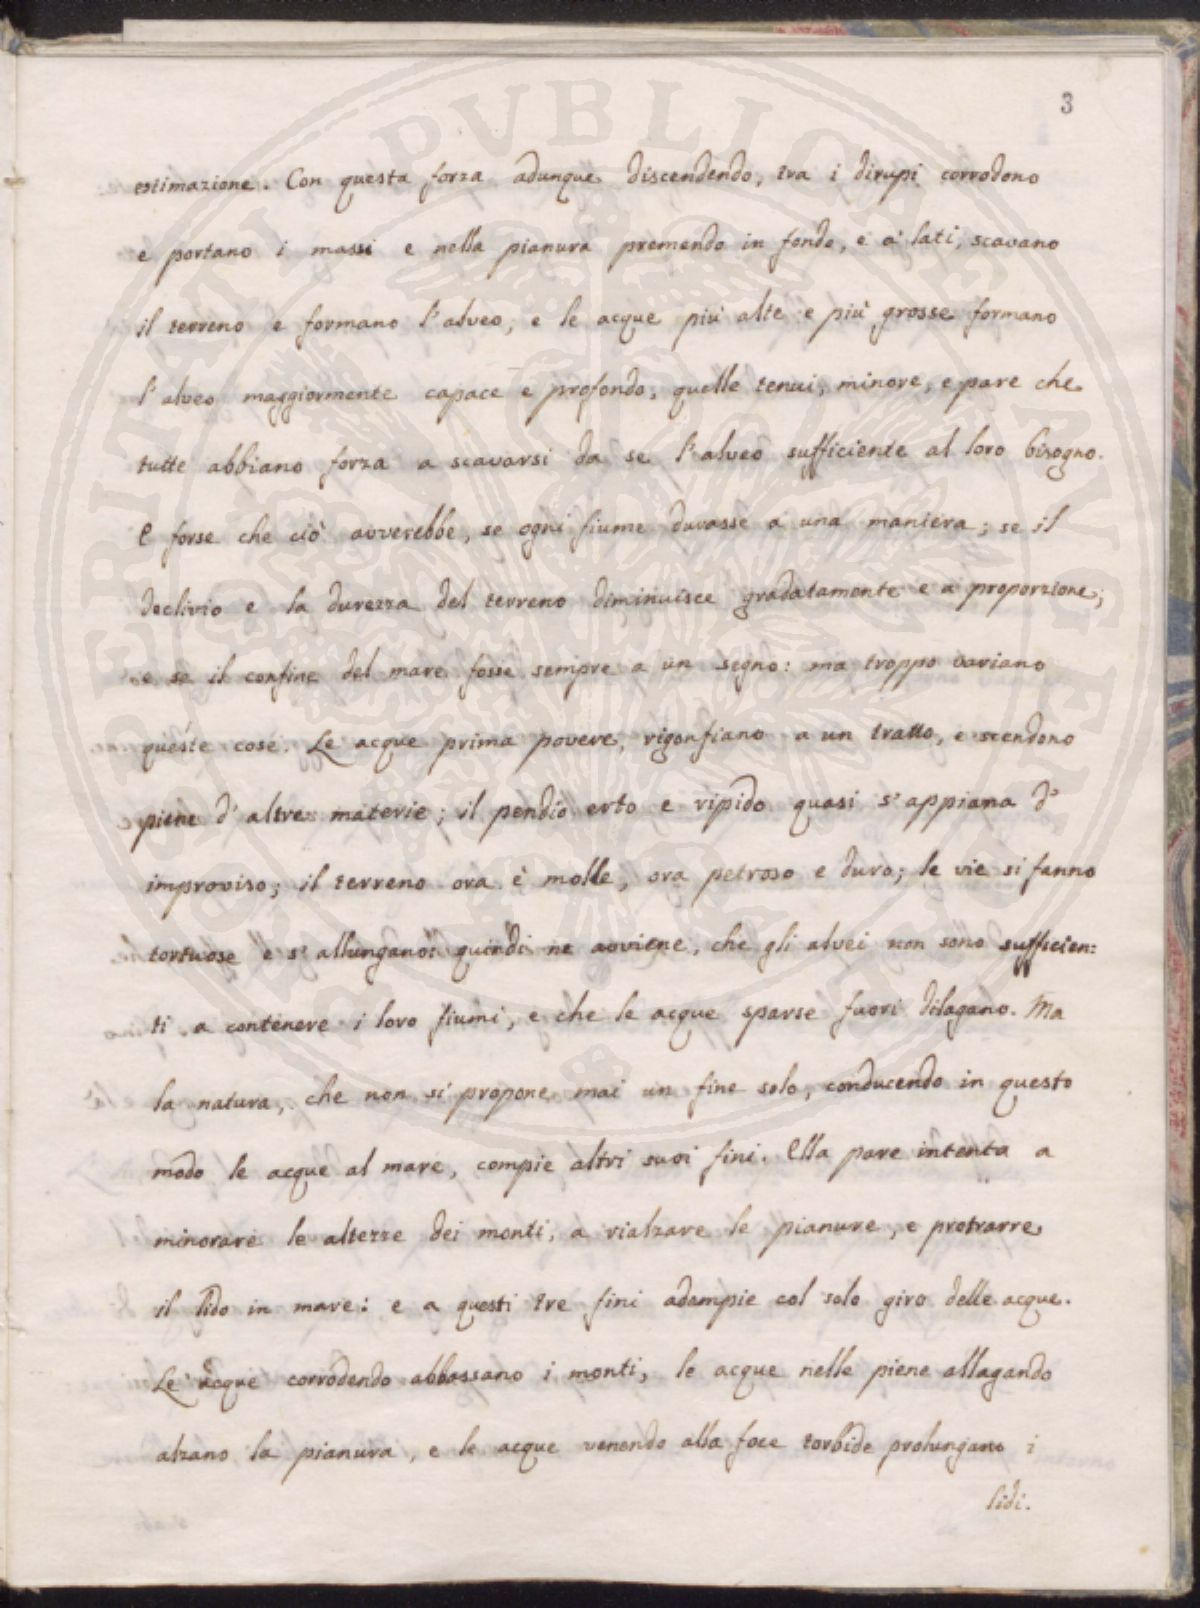 3
estimazione. Con questa forza adunque discendendo, tra i dirupi corrodono
e portano i massi e nella pianura premendo in fondo, e a' lati, scavano
il terreno e formano l'alveo, e le acque più alte e più grosse formano
l'alveo maggiormente capace e profondo, quelle tenui, minore, e pare che
tutte abbiano forza a scavarsi da se l'alveo sufficiente al loro bisogno.
E forse che ciò avverebbe, se ogni fiume durasse a una maniera; se il
declivio e la durezza del terreno diminuisce gradatamente e a proporzione;
e se il confine del mare fosse sempre a un segno: ma troppo variano
queste cose. Le acque prima povere, rigonfiano a un tratto, e scendono
piene d'altre materie; il pendio erto e ripido quasi s'appiana d'
improviso; il terreno ora è molle, ora petroso e duro; le vie si fanno
tortuose e s'allungano: quindi ne avviene, che gli alvei non sono sufficien:
ti a contenere i loro fiumi, e che le acque sparse fuori dilagano. Ma
la natura, che non si propone mai un fine solo, conducendo in questo
modo le acque al mare, compie altri suoi fini. Ella pare intenta a
minorare le altezze dei monti, a rialzare le pianure, e protrarre
il lido in mare: e a questi tre fini adempie col solo giro delle acque.
Le acque corrodendo abbassano i monti, le acque nelle piene allagando
alzano la pianura, e le acque venendo alla foce torbide prolungano i
lidi.
PROSPERITATI PVBLICAE AVGENDAE